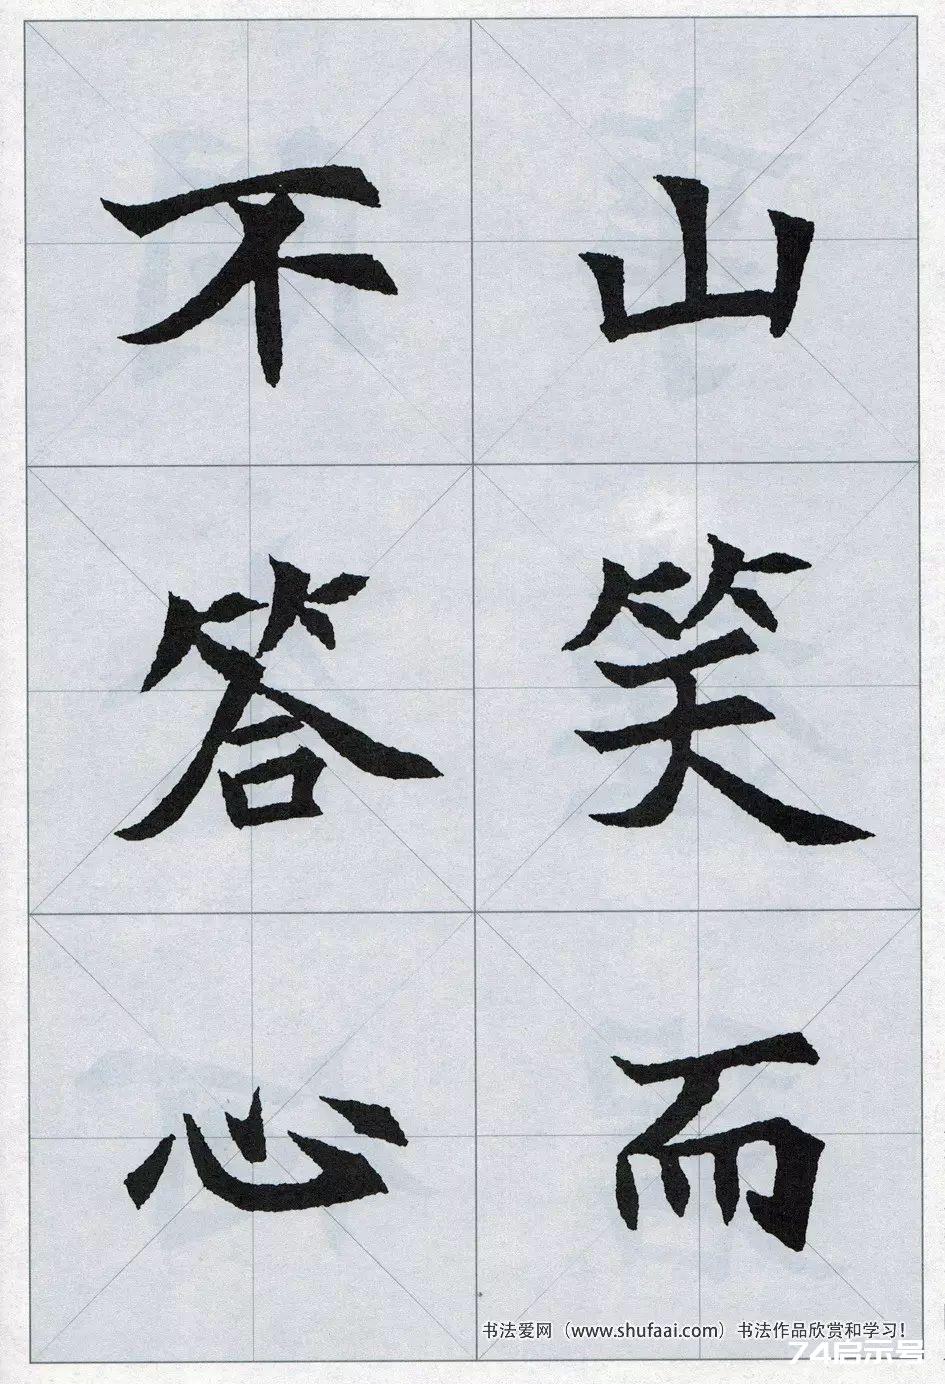 山笑而
不答心
书法爱网（www.shufaai.com）书法作品欣赏和学习！
74启示号